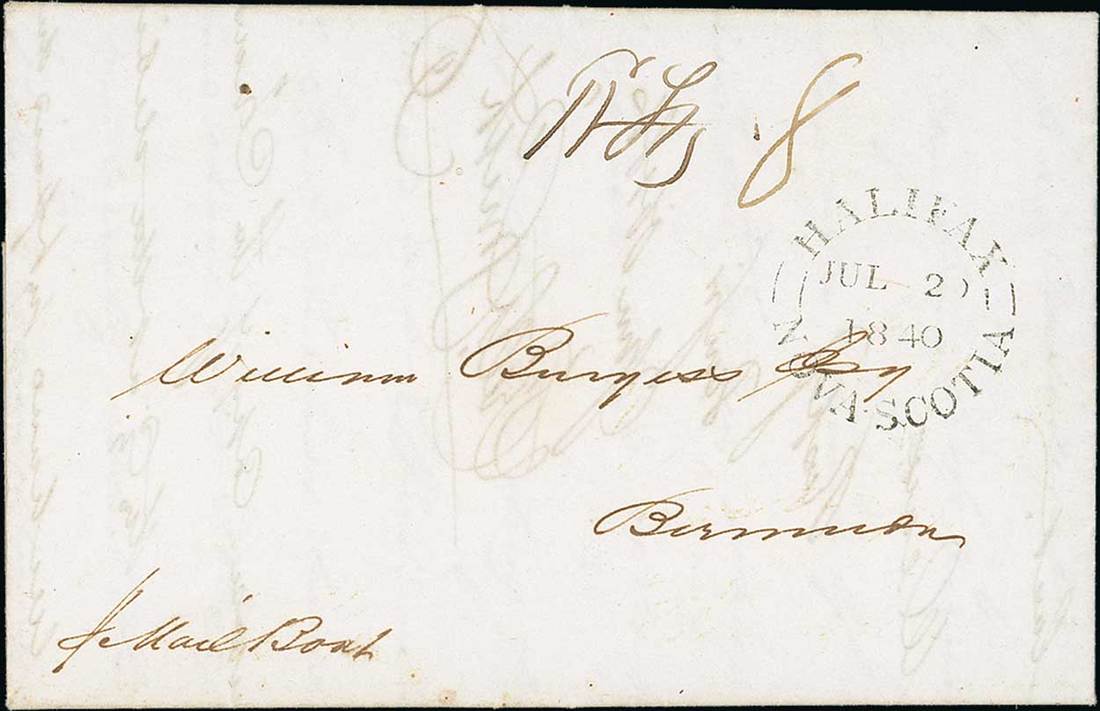 8
HALIFAX
JUL 2
1840
NOVA SCOTIA
William Burgess Esq
Bermuda
Mail Boat